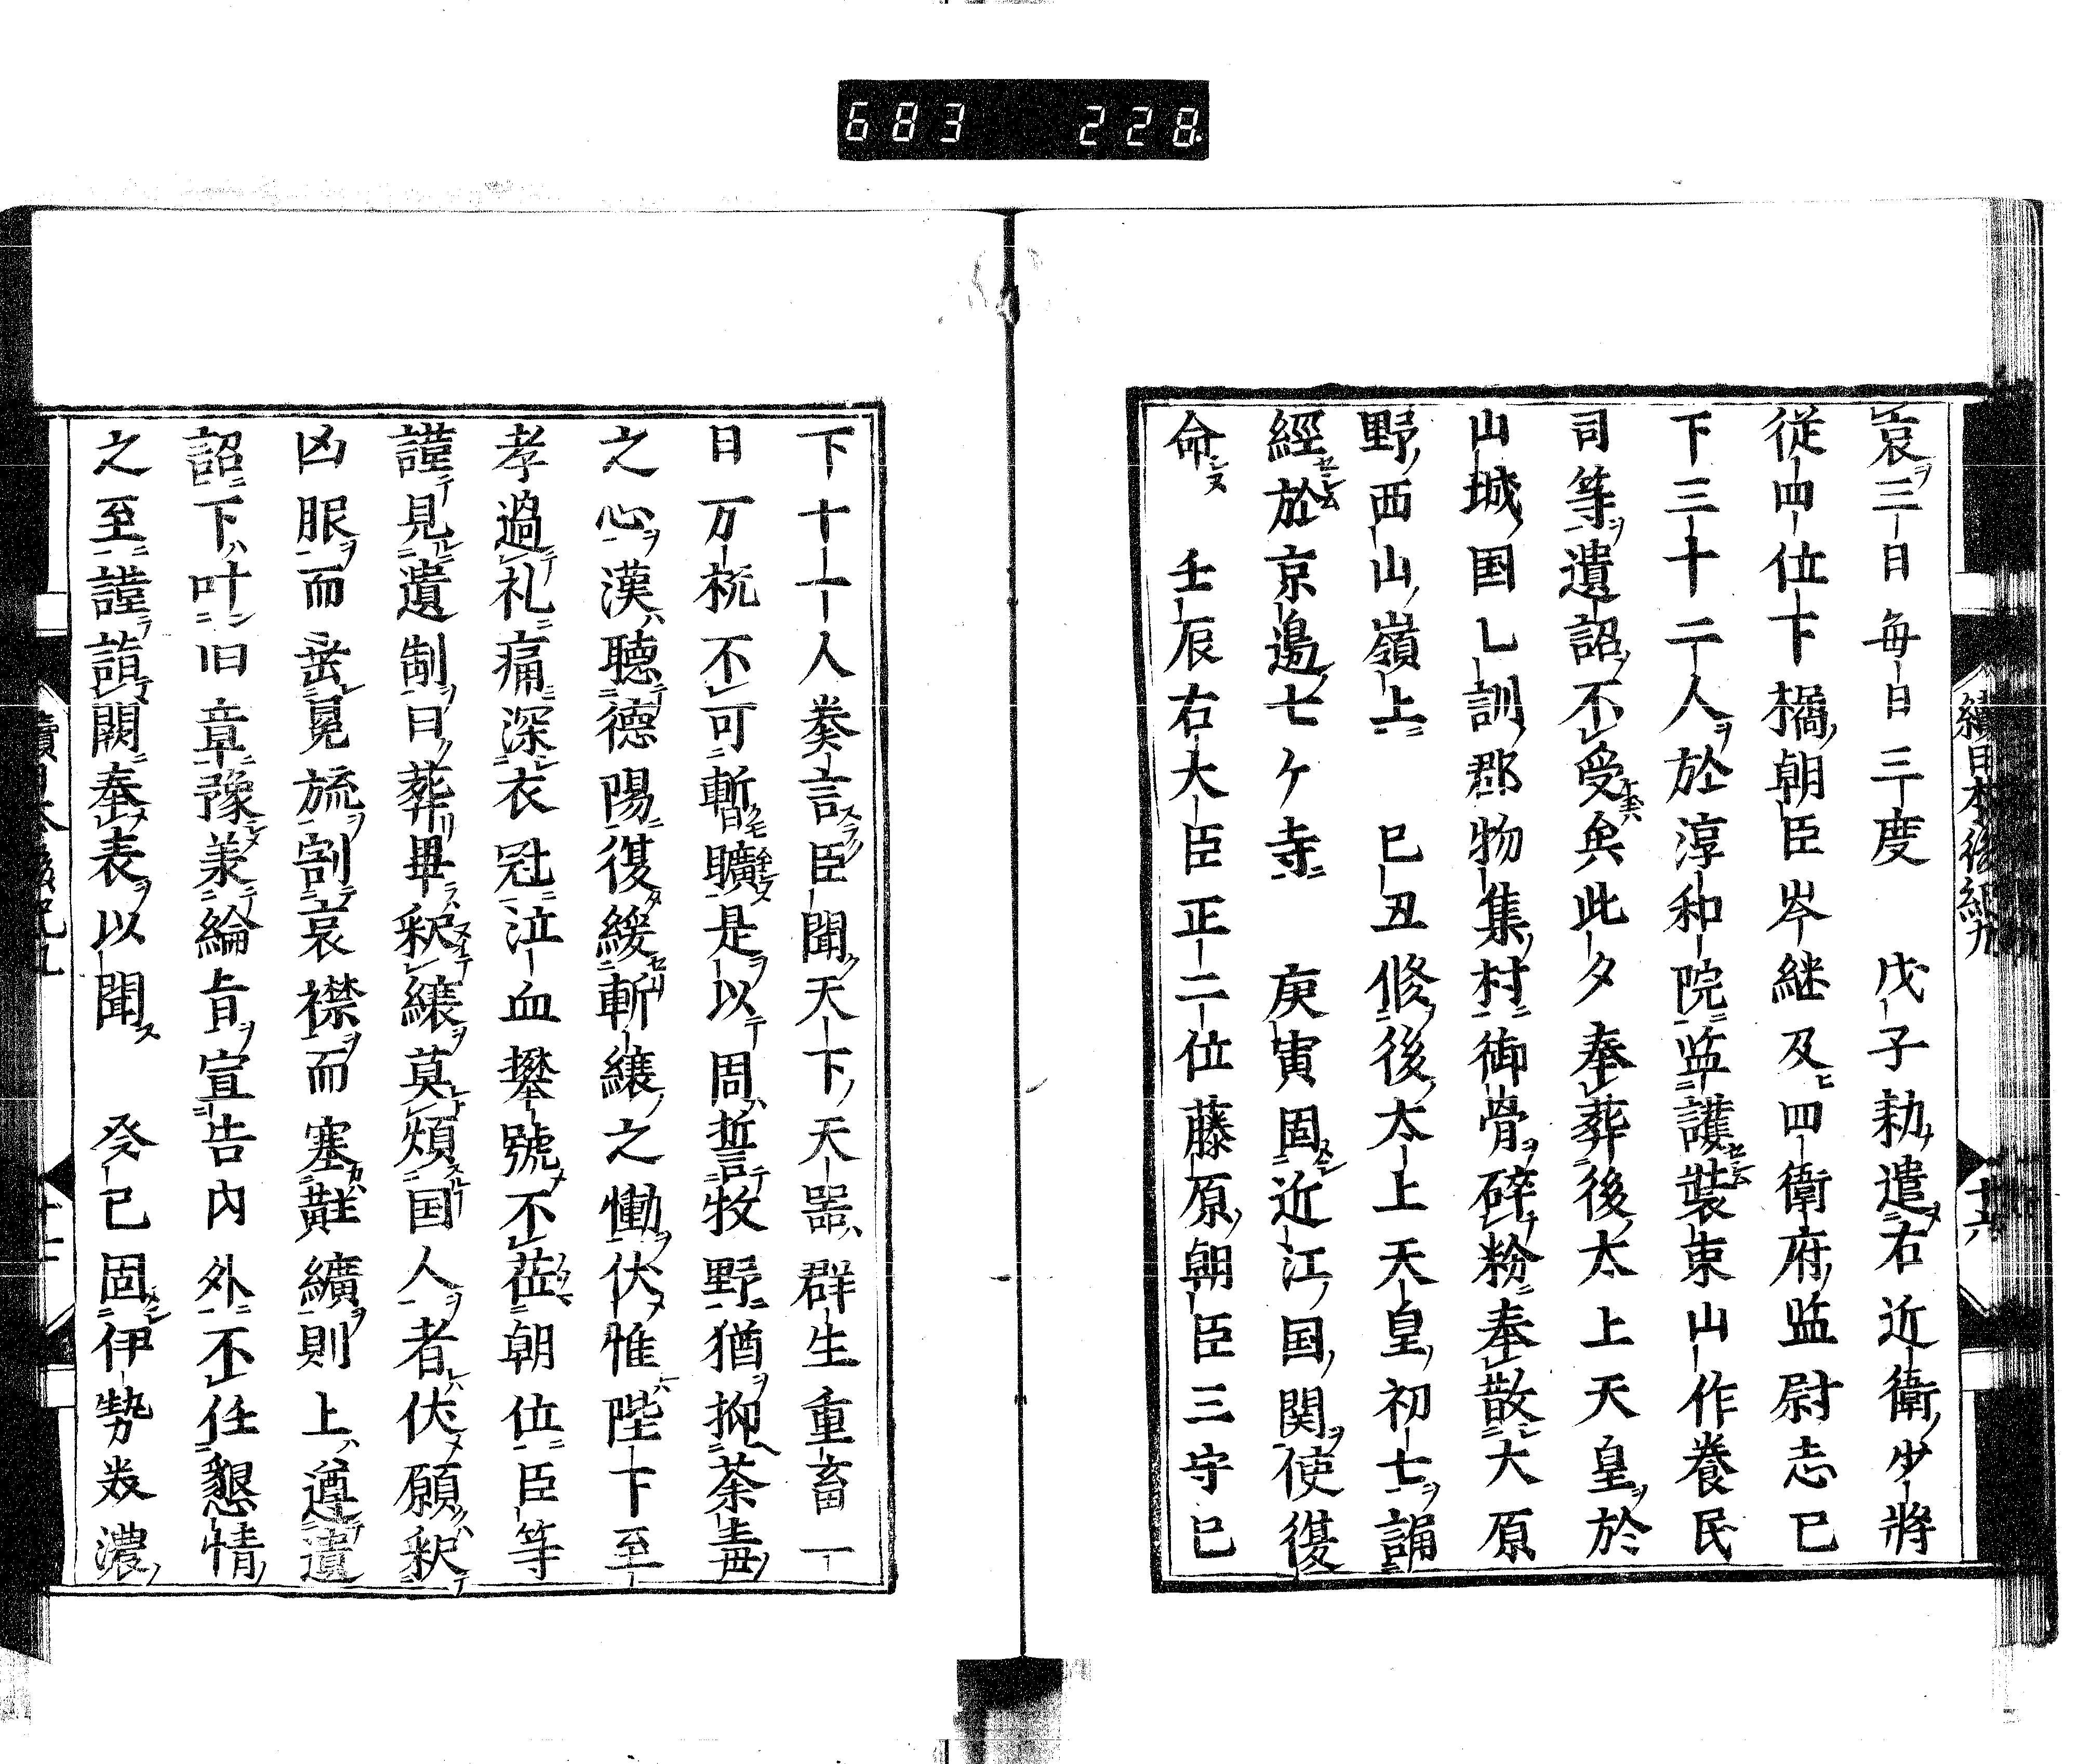 683 228
哀三日毎日三度 戊子勅遣右近衛少将
従四位下橘朝臣岑継及四衛府監尉志已
下三十二人於淳和院监護装束山作養民
司等遺詔不受矣此夕奉葬後太上天皇於
山城国乙訓郡物集村御骨碎粉奉散大原
野西山嶺上 已丑修後太上天皇初七誦
經於京邊七ケ寺 庚寅固近江国関使復
命 壬辰右大臣正二位藤原朝臣三守已
續日本後紀九
十六
下十一人奏言臣聞天下天器群生重畜一
日万機不可暫曠是以周誓牧野猶抑荼毒
之心漢聴德陽復緩斬縗之慟伏惟陛下至
孝過礼痛深衣冠泣血攀號不莅朝位臣等
謹見遺制曰葬畢釈縗莫煩国人者伏願釈
凶服而垂冕旒割哀襟而塞黈纊則上遵遺
詔下叶旧章豫羕綸旨宣告内外不任懇情
之至謹詣闕奉表以聞 癸已固伊勢美濃